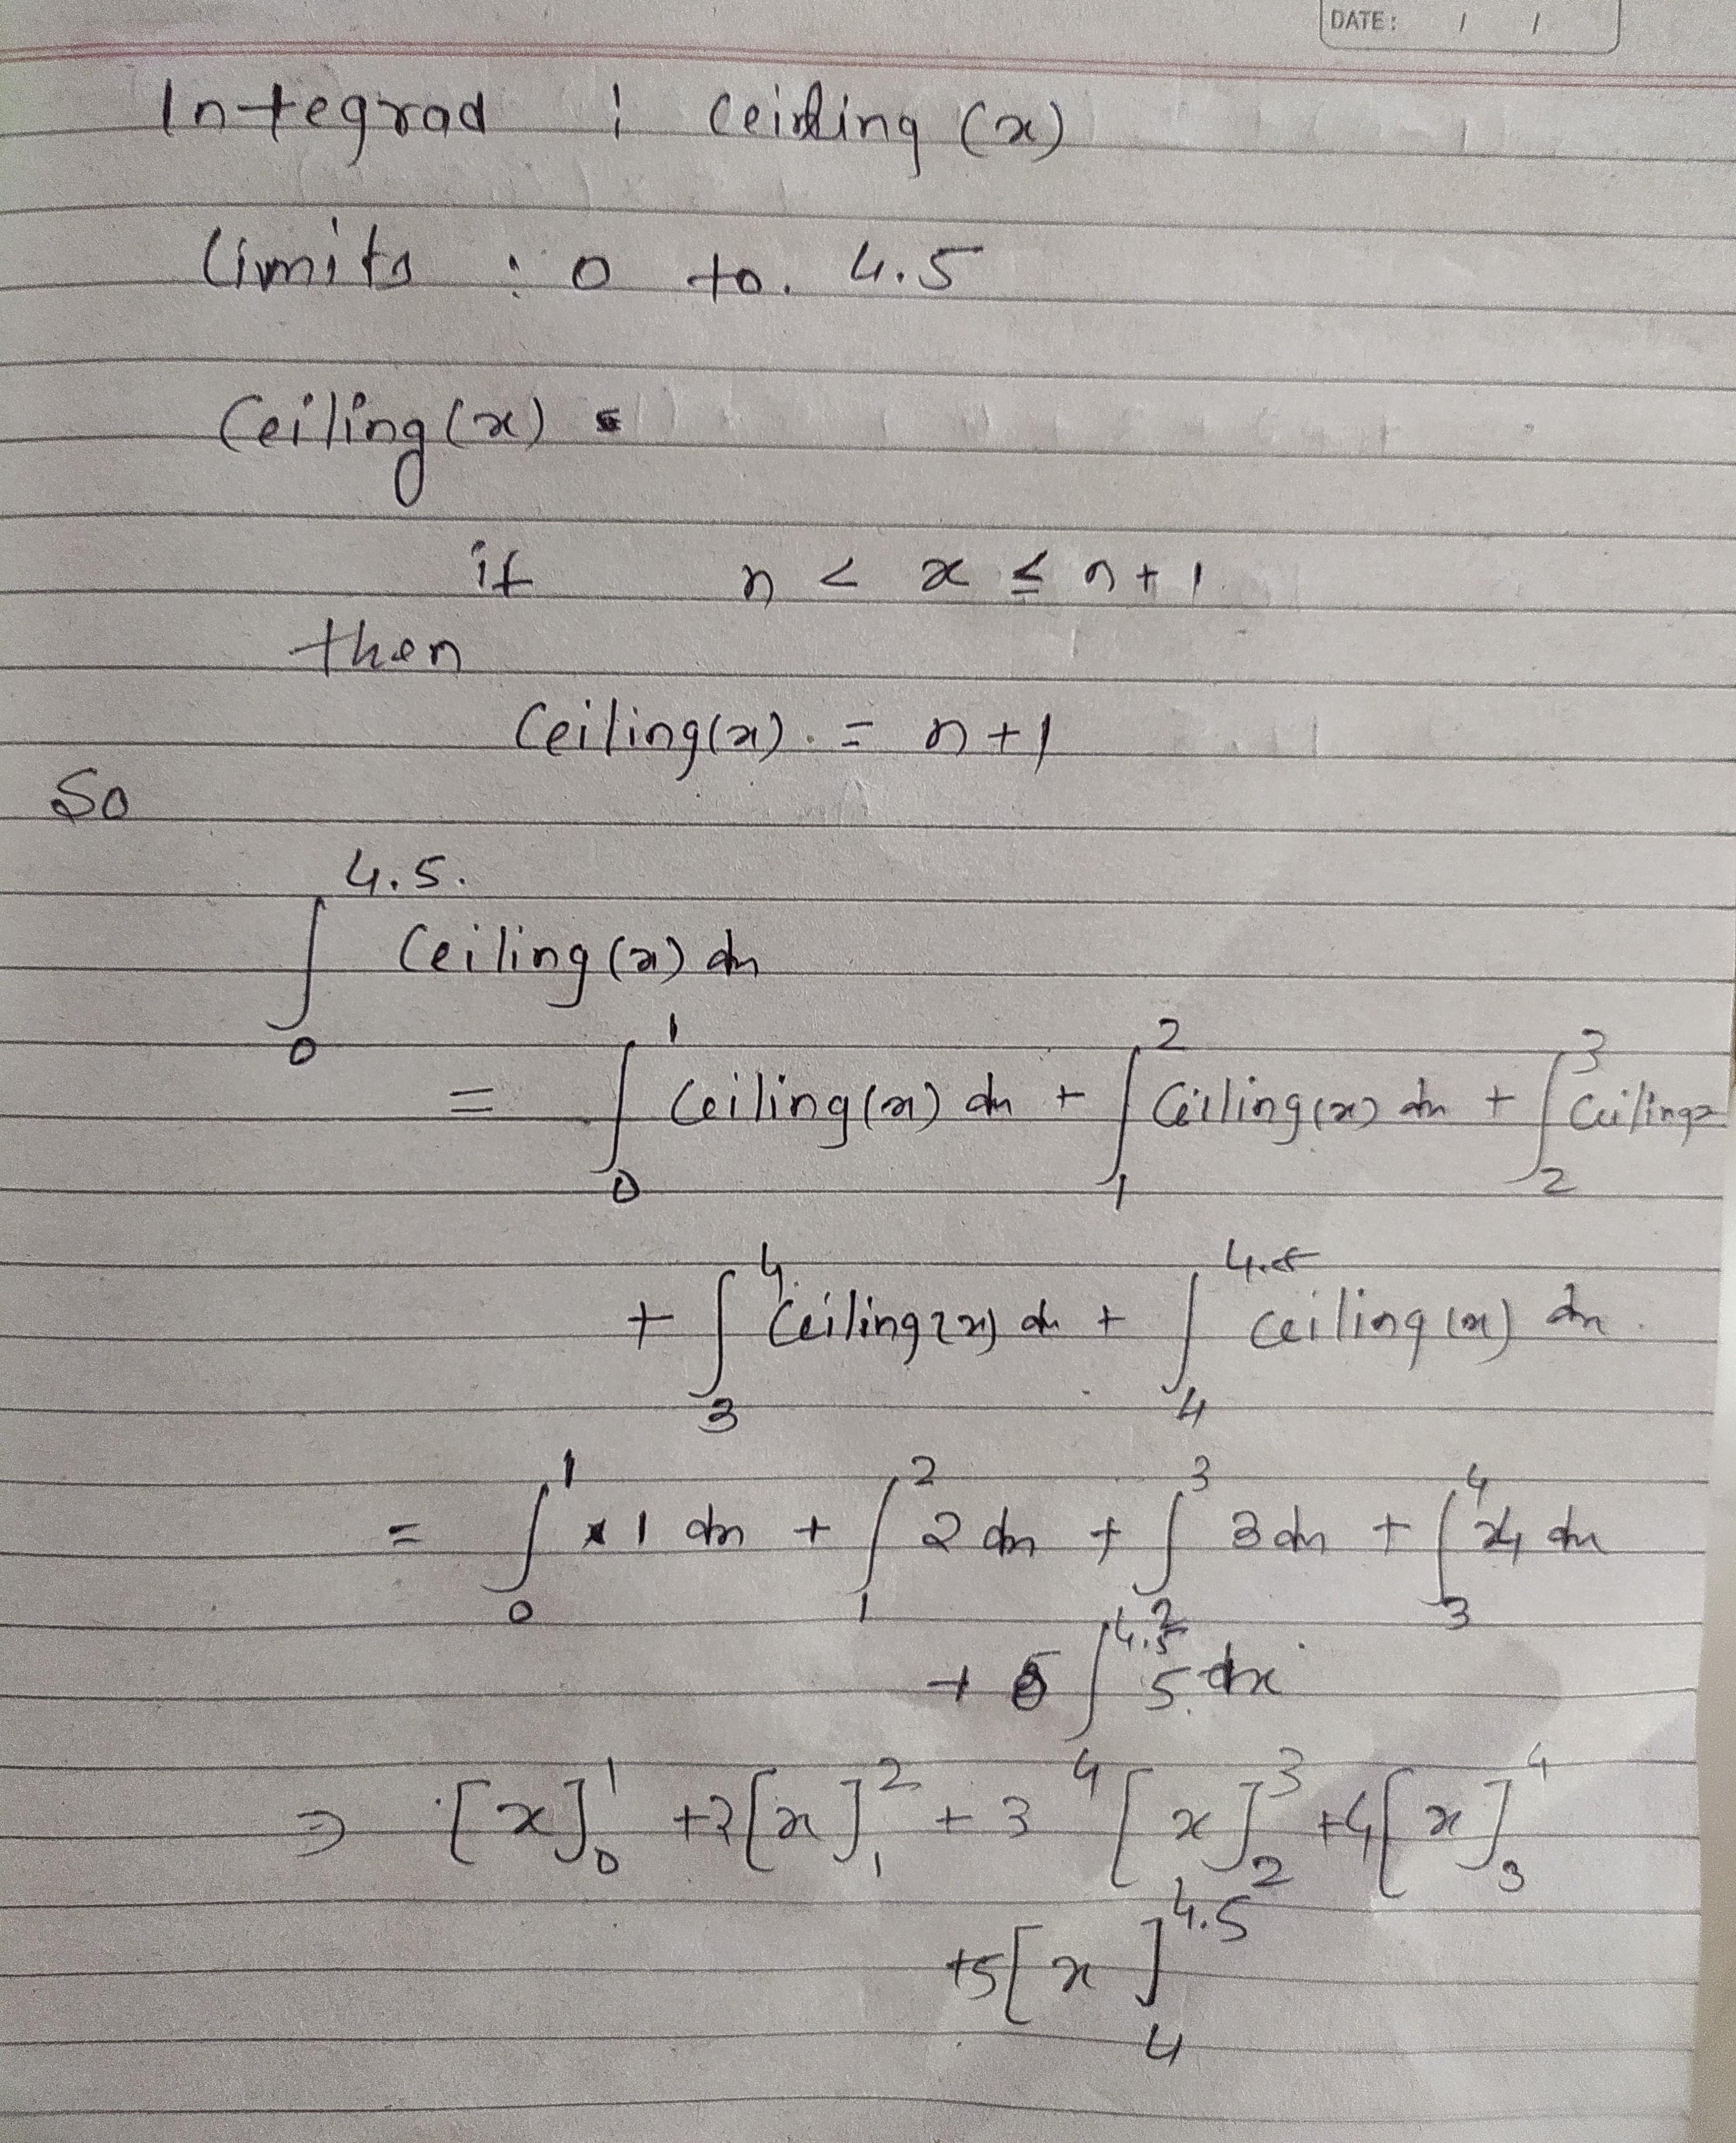 DATE: / /
Integrad : Ceiling (x)
limits : 0 to. 4.5
Ceiling(x)
if n < x ≤ n+1
then
Ceiling(x) = n+1
So
∫₀^4.5 Ceiling(x) dx
= ∫₀^1 Ceiling(x) dx + ∫₁^2 Ceiling(x) dx + ∫₂^3 Ceiling
+ ∫₃^4 Ceiling(x) dx + ∫₄^4.5 Ceiling(x) dx
= ∫₀^1 1 dx + ∫₁^2 2 dx + ∫₂^3 3 dx + ∫₃^4 4 dx
+ ∫₄^4.5 5 dx
⇒ [x]₀^1 + 2[x]₁^2 + 3 [x]₂^3 + 4[x]₃^4
+5[x]₄^4.5